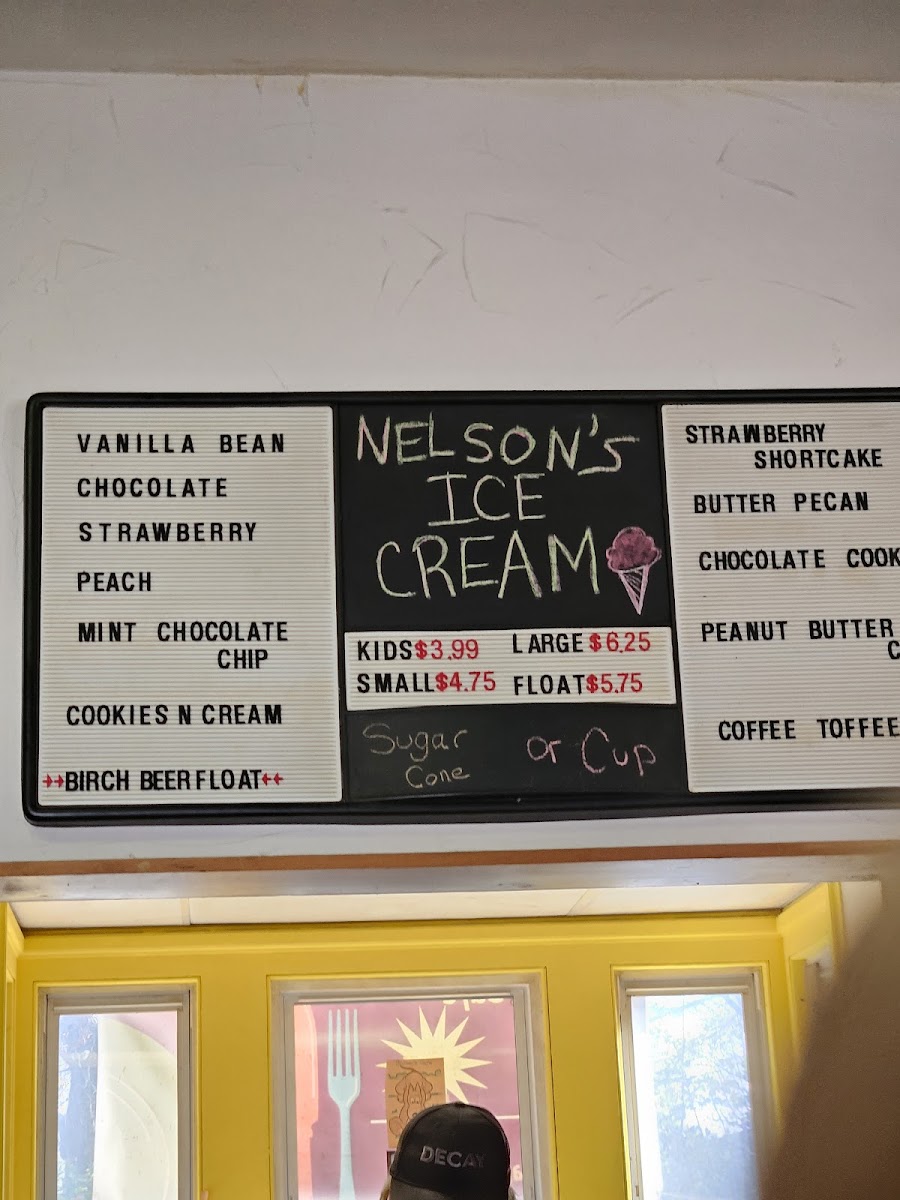 VANILLA BEAN
CHOCOLATE
STRAWBERRY
PEACH
MINT CHOCOLATE
CHIP
COOKIES N CREAM
BIRCH BEER FLOAT
NELSON'S
ICE
CREAM
KIDS $3.99 LARGE $6.25
SMALL $4.75 FLOAT $5.75
Sugar
Cone
or Cup
STRAWBERRY
SHORTCAKE
BUTTER PECAN
CHOCOLATE COOK
PEANUT BUTTER
C
COFFEE TOFFEE
DECAY